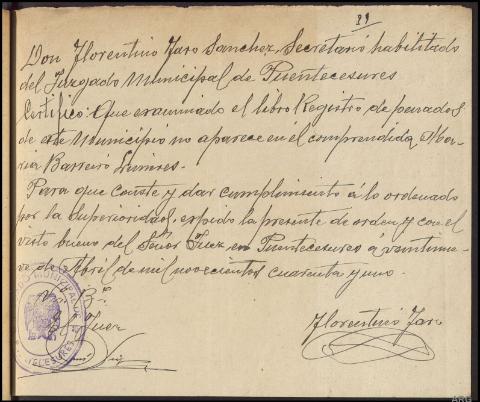 89
Don Florentino Jaro Sanchez, Secretario habilitado
del Juzgado Municipal de Puentecesures
Certifico: Que examinado el libro Registro de penados
de este Municipio no aparece en él comprendida, Ma-
ria Barreiro
Para que conste y dar cumplimiento á lo ordenado
por la Superioridad, expido la presente de orden y con el
visto bueno del Señor Juez en Puentecesures á veintinue-
ve de Abril de mil novecientos cuarenta y uno.
V. B.
El Juez
Florentino Jaro
ARG